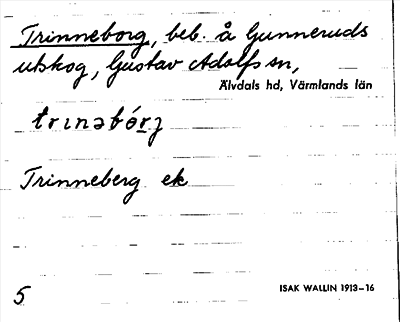 Trinneborg, beb. å Gunneruds
utskog, Gustav Adolfs sn,
Älvdals hd, Värmlands län
trınəbórj
Trinneberg ek
5
ISAK WALLIN 1913–16